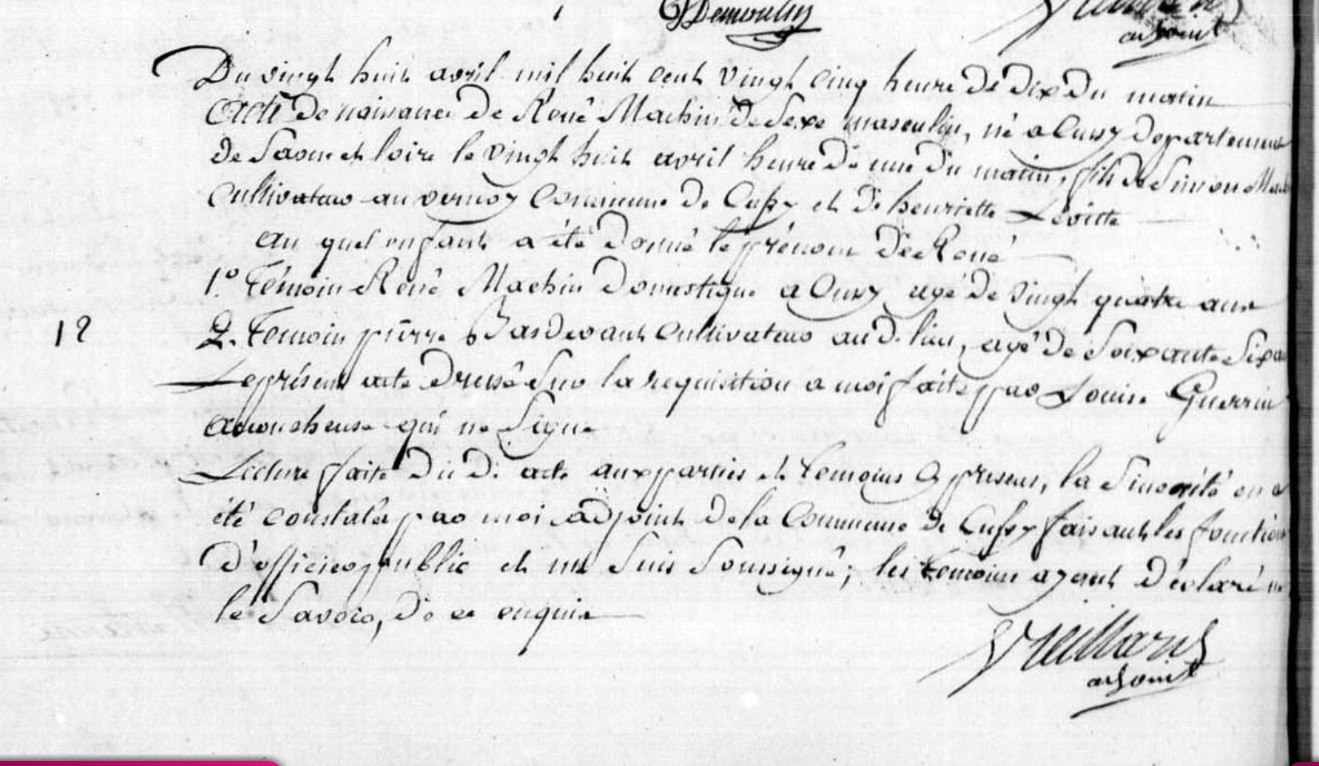 Demoulin
adjoint
Du vingt huit avril mil huit cent vingt cinq heure de dix du matin
acte de naissance de René Machin de Sexe masculin, né a Cussy departement
de Saone et loire le vingt huit avril heure de une du matin, fils de Simon Mach
Cultivateur au vernoy Commune de Cussy et de henriette Levitte
au quel enfant a été donné le prénom de René
1º Témoin René Machin Domestique a Cussy agé de vingt quatre ans
12
2. Temoin pierre Bardevant Cultivateur au d. lieu, agé de Soixante Six
Le présent acte dressé Sur la requisition a moi faite par Louise Guerrin
acoucheuse qui ne Signe
Lecture faite du di acte aux parties et temoins la Sincérité en a
été constatée par moi adjoint de la Commune de Cussy faisant les fonctions
D'officier public et me Suis Soussigné; les temoins ayant déclaré ne
le Savoir, de ce enquis
Vieillard
adjoint